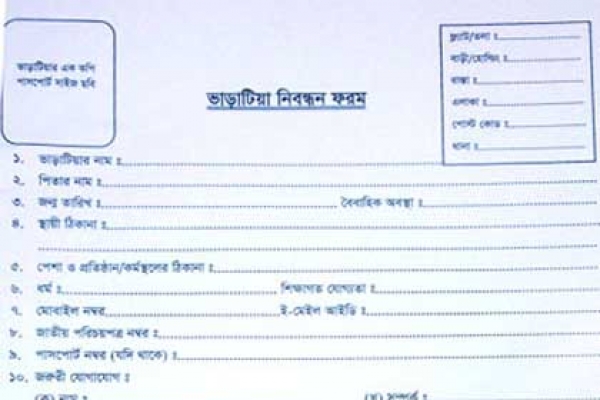 ভাড়াটিয়ার এক কপি
পাসপোর্ট সাইজ ছবি
ভাড়াটিয়া নিবন্ধন ফরম
ফ্ল্যাট/তলা :
বাড়ী/হোল্ডিং :
রাস্তা :
এলাকা :
পোস্ট কোড :
থানা :
১. ভাড়াটিয়ার নাম :
২. পিতার নাম :
৩. জন্ম তারিখ : বৈবাহিক অবস্থা :
৪. স্থায়ী ঠিকানা :
৫. পেশা ও প্রতিষ্ঠান/কর্মস্থলের ঠিকানা :
৬. ধর্ম : শিক্ষাগত যোগ্যতা :
৭. মোবাইল নম্বর ই-মেইল আইডি :
৮. জাতীয় পরিচয়পত্র নম্বর :
৯. পাসপোর্ট নম্বর (যদি থাকে) :
১০. জরুরী যোগাযোগ :
(ক) নাম : (খ) সম্পর্ক :